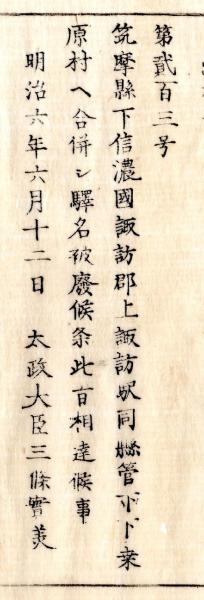 第貳百三号
筑摩縣下信濃國諏訪郡上諏訪駅同縣管下下桒
原村ヘ合併シ驛名被廢候条此旨相達候事
明治六年六月十二日　太政大臣三條實美